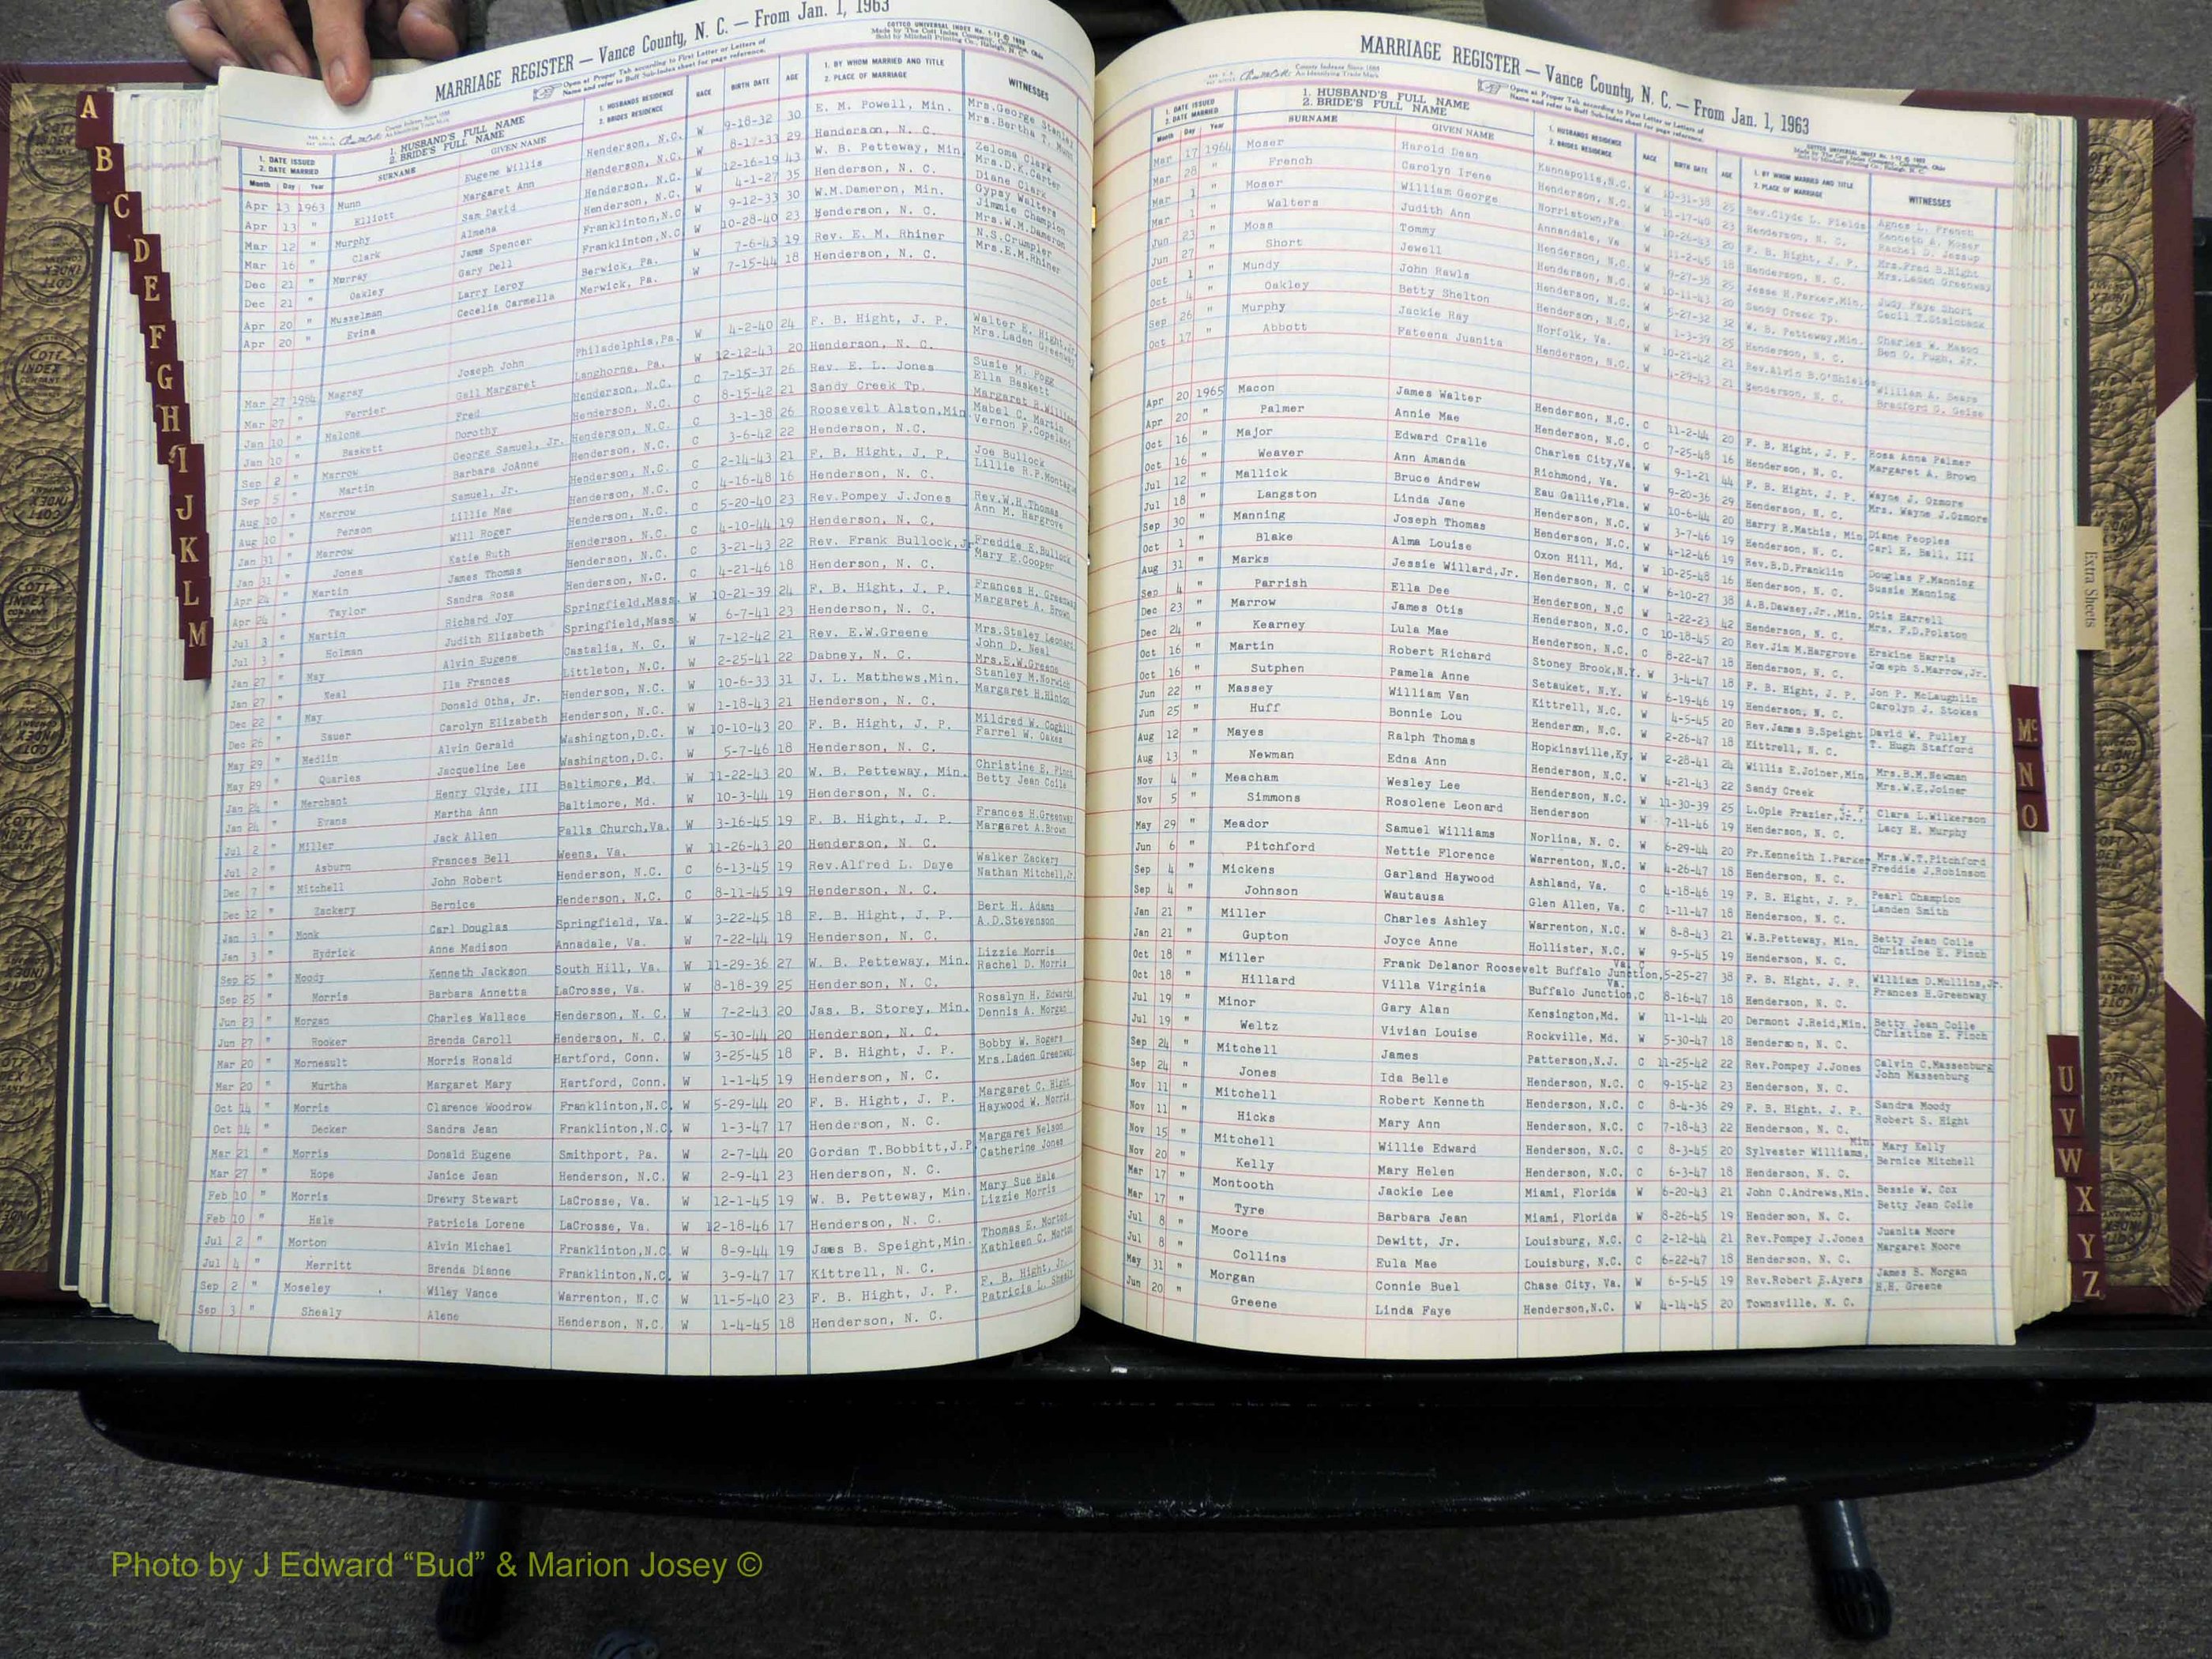 MARRIAGE REGISTER — Vance County, N. C. — From Jan. 1, 1963
Apr 13 1963 Munn Eugene Willis Henderson, N.C. W 9-18-32 30 E. M. Powell, Min.
Apr 13 " Elliott Margaret Ann Henderson, N.C. W 8-17-33 29 Henderson, N. C.
Mar 12 " Murphy Sam David Henderson, N.C. W 12-16-19 43 W. B. Petteway, Min. Zeloma Clark
Mar 16 " Clark Almena Henderson, N.C. W 4-1-27 35 Henderson, N. C. Mrs.D.K.Carter
Dec 21 " Murray James Spencer Franklinton,N.C. W 9-12-33 30 W.M.Dameron, Min.
Dec 21 " Oakley Gary Dell Franklinton,N.C. W 10-28-40 23 Henderson, N. C.
Apr 20 " Musselman Larry Leroy Berwick, Pa. W 7-6-43 19 Rev. E. M. Rhiner N.S.Crumpler
Apr 20 " Evina Cecelia Carmella Merwick, Pa. W 7-15-44 18 Henderson, N. C. Mrs.E.M.Rhiner
Mar 27 1964 Magray Joseph John Philadelphia,Pa. W 4-2-40 24 F. B. Hight, J. P.
Mar 27 " Ferrier Gail Margaret Langhorne, Pa. W 12-12-43 20 Henderson, N. C.
Jan 10 " Malone Fred Henderson, N.C. C 7-15-37 26 Rev. E. L. Jones
Jan 10 " Baskett Dorothy Henderson, N.C. C 8-15-42 21 Sandy Creek Tp. Ella Baskett
Sep 2 " Marrow George Samuel, Jr. Henderson, N.C. C 3-1-38 26 Roosevelt Alston,Min
Sep 5 " Martin Barbara JoAnne Henderson, N.C. C 3-6-42 22 Henderson, N.C.
Aug 10 " Marrow Samuel, Jr. Henderson, N.C. C 2-14-43 21 F. B. Hight, J. P. Joe Bullock
Aug 10 " Person Lillie Mae Henderson, N.C. C 4-16-48 16 Henderson, N. C. Lillie R.P.Montague
Jan 31 " Marrow Will Roger Henderson, N.C. C 5-20-40 23 Rev.Pompey J.Jones Rev.W.H.Thomas
Jan 31 " Jones Katie Ruth Henderson, N.C. C 4-10-44 19 Henderson, N. C. Ann M. Hargrove
Apr 24 " Martin James Thomas Henderson, N.C. C 3-21-43 22 Rev. Frank Bullock,Jr Freddie E.Bullock
Apr 24 " Taylor Sandra Rosa Henderson, N.C. C 4-21-46 18 Henderson, N. C. Mary E.Cooper
Jul 3 " Martin Richard Joy Springfield,Mass. W 10-21-39 24 F. B. Hight, J. P. Frances H. Greenway
Jul 3 " Holman Judith Elizabeth Springfield,Mass. W 6-7-41 23 Henderson, N. C. Margaret A. Brown
Jan 27 " May Alvin Eugene Castalia, N. C. W 7-12-42 21 Rev. E.W.Greene
Jan 27 " Neal Ila Frances Littleton, N.C. W 2-25-41 22 Dabney, N. C.
Dec 22 " May Donald Otha, Jr. Henderson, N.C. W 10-6-33 31 J. L. Matthews,Min.
Dec 26 " Sauer Carolyn Elizabeth Henderson, N.C. W 1-18-43 21 Henderson, N. C. Margaret H.Hinton
May 29 " Medlin Alvin Gerald Washington,D.C. W 10-10-43 20 F. B. Hight, J. P. Mildred W. Coghill
May 29 " Quarles Jacqueline Lee Washington,D.C. W 5-7-46 18 Henderson, N. C. Farrel W. Oakes
Jan 24 " Merchant Henry Clyde, III Baltimore, Md. W 11-22-43 20 W. B. Petteway, Min. Christine E. Finch
Jan 24 " Evans Martha Ann Baltimore, Md. W 10-3-44 19 Henderson, N. C. Betty Jean Coile
Jul 2 " Miller Jack Allen Falls Church,Va. W 3-16-45 19 F. B. Hight, J. P. Frances H.Greenway
Jul 2 " Asburn Frances Bell Weens, Va. W 11-26-43 20 Henderson, N. C. Margaret A.Brown
Dec 7 " Mitchell John Robert Henderson, N.C. C 6-13-45 19 Rev.Alfred L. Daye Walker Zackery
Dec 12 " Zackery Bernice Henderson, N.C. C 8-11-45 19 Henderson, N. C. Nathan Mitchell,Jr.
Jan 3 " Monk Carl Douglas Springfield, Va. W 3-22-45 18 F. B. Hight, J. P. Bert H. Adams
Jan 3 " Hydrick Anne Madison Annadale, Va. W 7-22-44 19 Henderson, N. C. A.D.Stevenson
Sep 25 " Moody Kenneth Jackson South Hill, Va. W 11-29-36 27 W. B. Petteway, Min. Lizzie Morris
Sep 25 " Morris Barbara Annetta LaCrosse, Va. W 8-18-39 25 Henderson, N. C. Rachel D. Morris
Jun 23 " Morgan Charles Wallace Henderson, N. C. W 7-2-43 20 Jas. B. Storey, Min. Rosalyn H. Edwards
Jun 27 " Hooker Brenda Caroll Henderson, N. C. W 5-30-44 20 Henderson, N. C. Dennis A. Morgan
Mar 20 " Morneault Morris Ronald Hartford, Conn. W 3-25-45 18 F. B. Hight, J. P. Bobby W. Rogers
Mar 20 " Murtha Margaret Mary Hartford, Conn. W 1-1-45 19 Henderson, N. C. Mrs.Laden Greenway
Oct 14 " Morris Clarence Woodrow Franklinton,N.C. W 5-29-44 20 F. B. Hight, J. P. Margaret C. Hight
Oct 14 " Decker Sandra Jean Franklinton,N.C. W 1-3-47 17 Henderson, N. C. Haywood W. Morris
Mar 21 " Morris Donald Eugene Smithport, Pa. W 2-7-44 20 Gordan T.Bobbitt,J.P. Margaret Nelson
Mar 27 " Hope Janice Jean Henderson, N.C. W 2-9-41 23 Henderson, N. C. Catherine Jones
Feb 10 " Morris Drewry Stewart LaCrosse, Va. W 12-1-45 19 W. B. Petteway, Min. Mary Sue Hale
Feb 10 " Hale Patricia Lorene LaCrosse, Va. W 12-18-46 17 Henderson, N. C. Lizzie Morris
Jul 2 " Morton Alvin Michael Franklinton,N.C. W 8-9-44 19 James B. Speight,Min. Thomas E. Morton
Jul 4 " Merritt Brenda Dianne Franklinton,N.C. W 3-9-47 17 Kittrell, N. C. Kathleen C. Morton
Sep 2 " Moseley Wiley Vance Warrenton, N.C W 11-5-40 23 F. B. Hight, J. P. F. B. Hight, Jr.
Sep 3 " Shealy Alene Henderson, N.C. W 1-4-45 18 Henderson, N. C. Patricia L. Shealy
MARRIAGE REGISTER — Vance County, N. C. — From Jan. 1, 1963
Mar 17 1964 Moser Harold Dean Kannapolis,N.C. W 10-31-38 25 Rev.Clyde L. Fields Agnes L. French
Mar 28 " French Carolyn Irene Henderson, N.C. W 11-17-40 23 Henderson, N. C. Kenneth A. Moser
Mar 1 " Moser William George Norristown,Pa W 10-26-43 20 F. B. Hight, J. P. Rachel D. Jessup
Mar 1 " Walters Judith Ann Annandale, Va W 11-2-45 18 Henderson, N. C. Mrs.Fred B.Hight
Jun 23 " Moss Tommy Henderson, N.C. W 9-27-38 25 Jesse H.Parker,Min. Judy Faye Short
Jun 27 " Short Jewell Henderson, N.C. W 10-11-43 20 Sandy Creek Tp.
Oct 1 " Mundy John Rawls Henderson, N.C. W 5-27-32 32 W. B. Petteway,Min. Charles W. Mason
Oct 4 " Oakley Betty Shelton Henderson, N.C. W 1-3-39 25 Henderson, N. C. Ben O. Pugh, Jr.
Sep 26 " Murphy Jackie Ray Norfolk, Va. W 10-21-42 21 Rev.Alvin B.O'Shields William A. Sears
Oct 17 " Abbott Fateena Juanita Henderson, N.C. W 4-29-43 21 Henderson, N. C.
Apr 20 1965 Macon James Walter Henderson, N.C. C 11-2-44 20 F. B. Hight, J. P. Rosa Anna Palmer
Apr 20 " Palmer Annie Mae Henderson, N.C. C 7-25-48 16 Henderson, N. C. Margaret A. Brown
Oct 16 " Major Edward Cralle Charles City,Va. W 9-1-21 44 F. B. Hight, J. P. Wayne J. Ozmore
Oct 16 " Weaver Ann Amanda Richmond, Va. W 9-20-36 29 Henderson, N. C. Mrs. Wayne J.Ozmore
Jul 12 " Mallick Bruce Andrew Eau Gallie,Fla. W 10-6-44 20 Harry R.Mathis, Min. Diane Peoples
Jul 18 " Langston Linda Jane Henderson, N.C. W 3-7-46 19 Henderson, N. C. Carl H. Ball, III
Sep 30 " Manning Joseph Thomas Henderson, N.C. W 4-12-46 19 Rev.B.D.Franklin Douglas F.Manning
Oct 1 " Blake Alma Louise Oxon Hill, Md. W 10-25-48 16 Henderson, N. C. Sussie Manning
Aug 31 " Marks Jessie Willard,Jr. Henderson, N. C. W 6-10-27 38 A.B.Dawsey,Jr.,Min. Otis Harrell
Sep 4 " Parrish Ella Dee Henderson, N.C W 1-22-23 42 Henderson, N. C. Mrs. F.D.Polston
Dec 23 " Marrow James Otis Henderson, N.C. C 10-18-45 20 Rev.Jim M.Hargrove Erskine Harris
Dec 24 " Kearney Lula Mae Henderson, N.C. C 8-22-47 18 Henderson, N. C. Joseph S.Marrow,Jr.
Oct 16 " Martin Robert Richard Stoney Brook,N.Y. W 3-4-47 18 F. B. Hight, J. P. Jon P. McLaughlin
Oct 16 " Sutphen Pamela Anne Setauket, N.Y. W 6-19-46 19 Henderson, N. C. Carolyn J. Stokes
Jun 22 " Massey William Van Kittrell, N.C. W 4-5-45 20 Rev.James B.Speight David W. Pulley
Jun 25 " Huff Bonnie Lou Henderson, N.C. W 2-26-47 18 Kittrell, N. C. T. Hugh Stafford
Aug 12 " Mayes Ralph Thomas Hopkinsville,Ky. W 2-28-41 24 Willis E.Joiner,Min. Mrs.B.M.Newman
Aug 13 " Newman Edna Ann Henderson, N.C. W 4-21-43 22 Sandy Creek Mrs.W.E.Joiner
Nov 4 " Meacham Wesley Lee Henderson, N.C. W 11-30-39 25 L.Opie Frazier,Jr., Clara L.Wilkerson
Nov 5 " Simmons Rosolene Leonard Henderson W 7-11-46 19 Henderson, N. C. Lacy H. Murphy
May 29 " Meador Samuel Williams Norlina, N. C. W 6-29-44 20 Fr.Kenneith I.Parker Mrs.W.T.Pitchford
Jun 6 " Pitchford Nettie Florence Warrenton, N.C. W 4-26-47 18 Henderson, N. C. Freddie J.Robinson
Sep 4 " Mickens Garland Haywood Ashland, Va. C 4-18-46 19 F. B. Hight, J. P. Pearl Champion
Sep 4 " Johnson Wautausa Glen Allen, Va. C 1-11-47 18 Henderson, N. C. Landen Smith
Jan 21 " Miller Charles Ashley Warrenton, N.C. W 8-8-43 21 W.B.Petteway, Min. Betty Jean Coile
Jan 21 " Gupton Joyce Anne Hollister, N.C. W 9-5-45 19 Henderson, N. C. Christine E. Finch
Oct 18 " Miller Frank Delanor Roosevelt Buffalo Junction, Va. C 5-25-27 38 F. B. Hight, J. P. William D.Mullins,Jr.
Oct 18 " Hillard Villa Virginia Buffalo Junction, Va. C 8-16-47 18 Henderson, N. C. Frances H.Greenway
Jul 19 " Minor Gary Alan Kensington,Md. W 11-1-44 20 Dermont J.Reid,Min. Betty Jean Coile
Jul 19 " Weltz Vivian Louise Rockville, Md. W 5-30-47 18 Henderson, N. C. Christine E. Finch
Sep 24 " Mitchell James Patterson,N.J. C 11-25-42 22 Rev.Pompey J.Jones Calvin C.Massenburg
Sep 24 " Jones Ida Belle Henderson, N.C. C 9-15-42 23 Henderson, N. C. John Massenburg
Nov 11 " Mitchell Robert Kenneth Henderson, N.C. C 8-4-36 29 F. B. Hight, J. P. Sandra Moody
Nov 11 " Hicks Mary Ann Henderson, N.C. C 7-18-43 22 Henderson, N. C. Robert S. Hight
Nov 15 " Mitchell Willie Edward Henderson, N.C. C 8-3-45 20 Sylvester Williams, Min. Mary Kelly
Nov 20 " Kelly Mary Helen Henderson, N.C. C 6-3-47 18 Henderson, N. C. Bernice Mitchell
Mar 17 " Montooth Jackie Lee Miami, Florida W 6-20-43 21 John C.Andrews,Min. Bessie W. Cox
Mar 17 " Tyre Barbara Jean Miami, Florida W 8-26-45 19 Henderson, N. C. Betty Jean Coile
Jul 8 " Moore Dewitt, Jr. Louisburg, N.C. C 2-12-44 21 Rev.Pompey J.Jones Juanita Moore
Jul 8 " Collins Eula Mae Louisburg, N.C. C 6-22-47 18 Henderson, N. C. Margaret Moore
May 31 " Morgan Connie Buel Chase City, Va. W 6-5-45 19 Rev.Robert E.Ayers James S. Morgan
Jun 20 " Greene Linda Faye Henderson,N.C. W 4-14-45 20 Townsville, N. C. H.H. Greene
A
B
C
D
E
F
G
H
I
J
K
L
M
Extra Sheets
Mc
N
O
U
V
W
X
Y
Z
Photo by J Edward “Bud” & Marion Josey ©